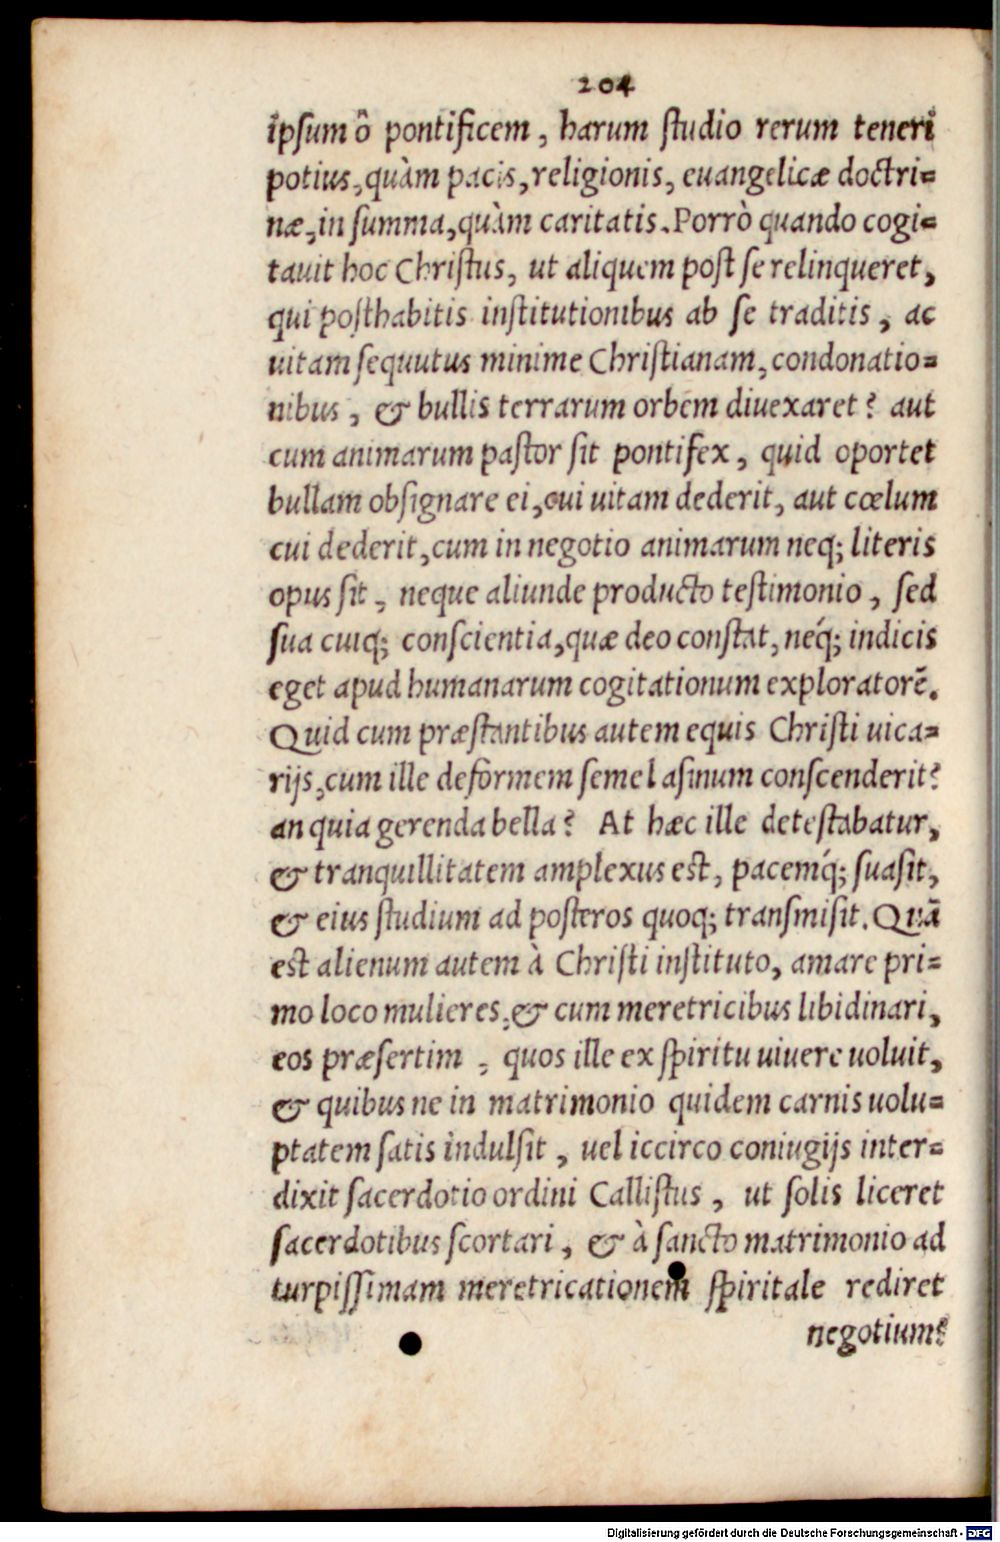 204
ipsum ô pontificem, harum ſtudio rerum teneri
potius, quàm pacis, religionis, euangelicæ doctri=
næ, in ſumma, quàm caritatis. Porrò quando cogi=
tauit hoc Chriſtus, ut aliquem poſt ſe relinqueret,
qui poſthabitis inſtitutionibus ab ſe traditis, ac
uitam ſequutus minime Chriſtianam, condonatio=
nibus, & bullis terrarum orbem diuexaret? aut
cum animarum paſtor ſit pontifex, quid oportet
bullam obſignare ei, cui uitam dederit, aut cœlum
cui dederit, cum in negotio animarum neq; literis
opus ſit, neque aliunde producto teſtimonio, ſed
ſua cuiq; conſcientia, quæ deo conſtat, neq́; indicis
eget apud humanarum cogitationum exploratorē.
Quid cum præſtantibus autem equis Chriſti uica=
rijs, cum ille deformem ſemel aſinum conſcenderit?
an quia gerenda bella? At hæc ille deteſtabatur,
& tranquillitatem amplexus est, pacemq́; ſuaſit,
& eius ſtudium ad poſteros quoq; tranſmiſit. Quā
est alienum autem à Chriſti inſtituto, amare pri=
mo loco mulieres, & cum meretricibus libidinari,
eos præſertim, quos ille ex ſpiritu uiuere uoluit,
& quibus ne in matrimonio quidem carnis uolu=
ptatem ſatis indulſit, uel iccirco coniugijs inter=
dixit ſacerdotio ordini Calliſtus, ut ſolis liceret
ſacerdotibus ſcortari, & à ſancto matrimonio ad
turpiſſimam meretricationem ſpiritale rediret
negotium?
Digitalisierung gefördert durch die Deutsche Forschungsgemeinschaft - DFG